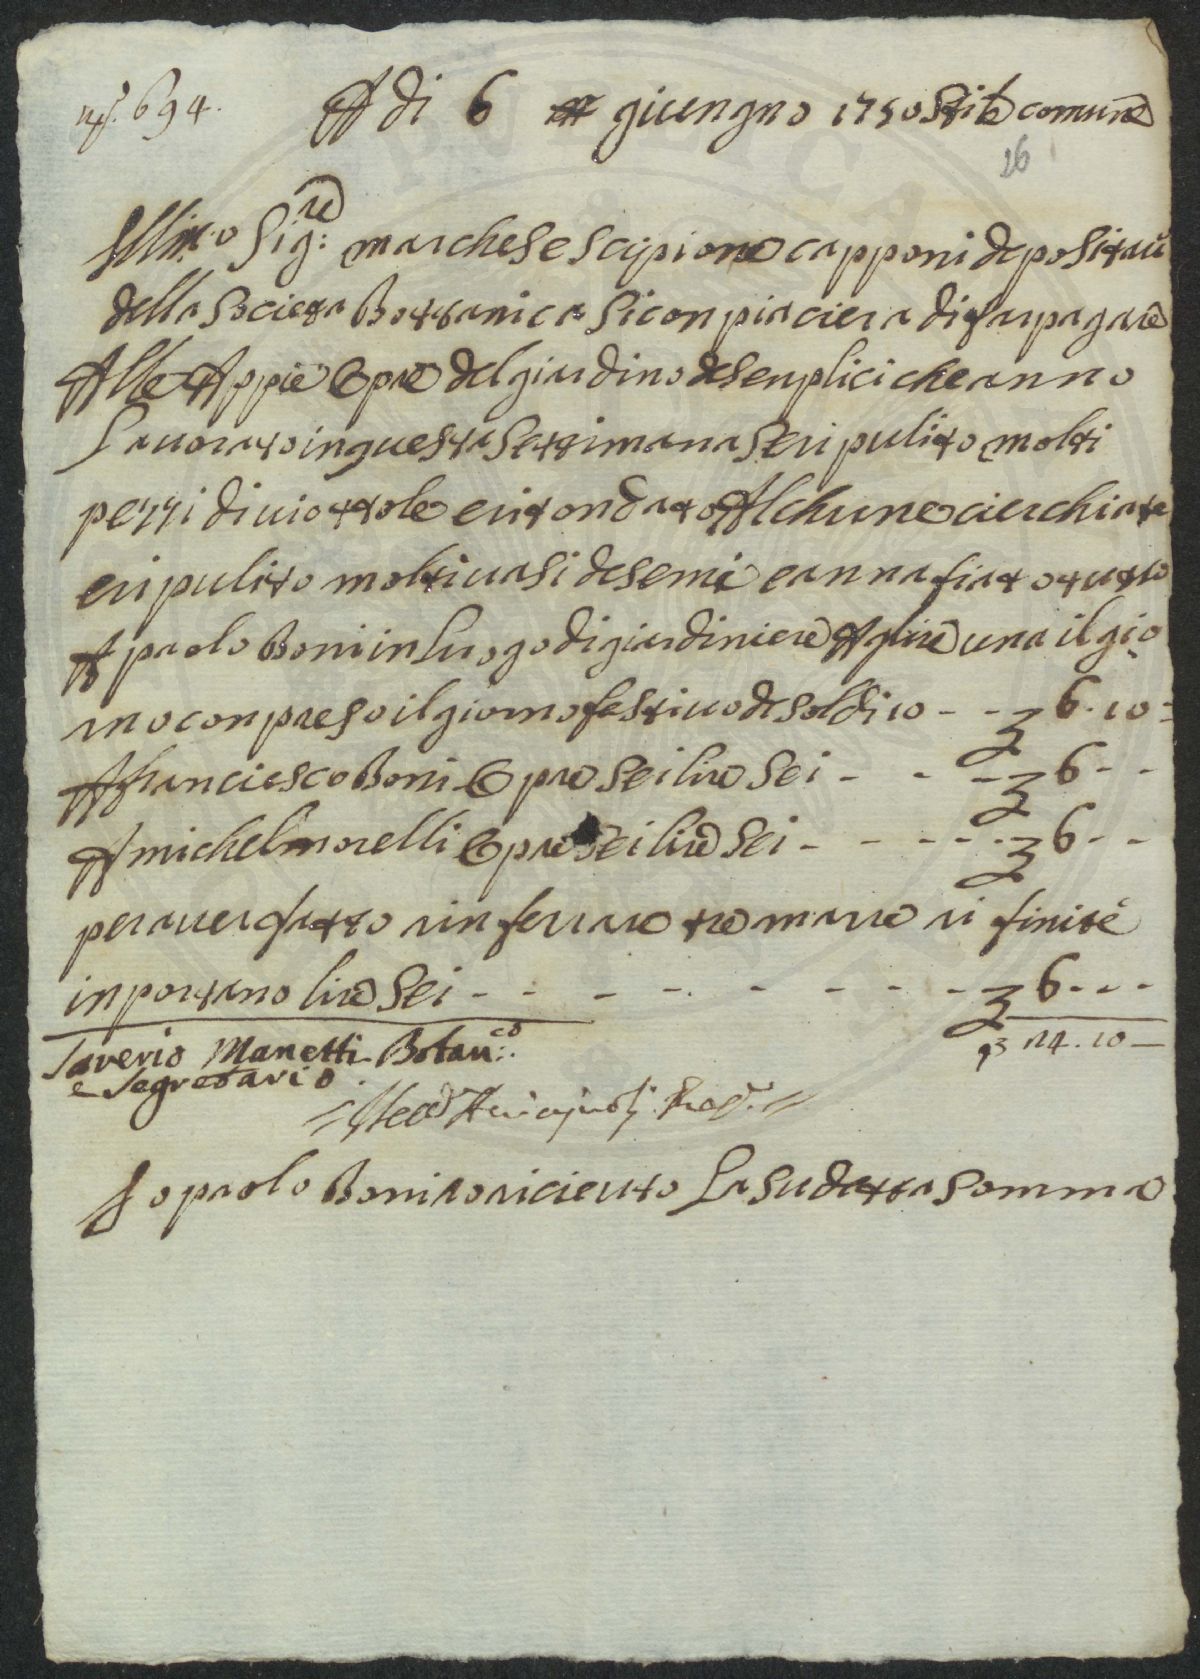 n.º 694. A di 6 giungno 1750 Stile comune
26
Ill.mo Sig:re marchese scipione capponi depositari
della Societa Bottanica Si conpiaciera di far pagare
Alle Appie Opre del giardino de senplici che anno
Lauorato in questa Settimana Se ripulito molti
pezzi di uiottole e ritondato Alchune cierchiate
e ripulito molti uasi de semi e annafiato tutto
A paolo Boni in Luogo di giardiniere A lire una il gio
rno conpreso il giorno festiuo de soldi 10 - - 6. 10 =
A franciesco Boni Opre Sei lire Sei - - - 6 - -
A michel morelli Opre Sei lire Sei - - - - - - 6 - -
per auer fatto rinferrare tre marre ri finite
inportano lire Sei - - - - - - - - - - 6 - - -
Saverio Manetti Botan:co 24. 10 —
e Segretario
Io paolo Boni o riceuto La sudetta somma